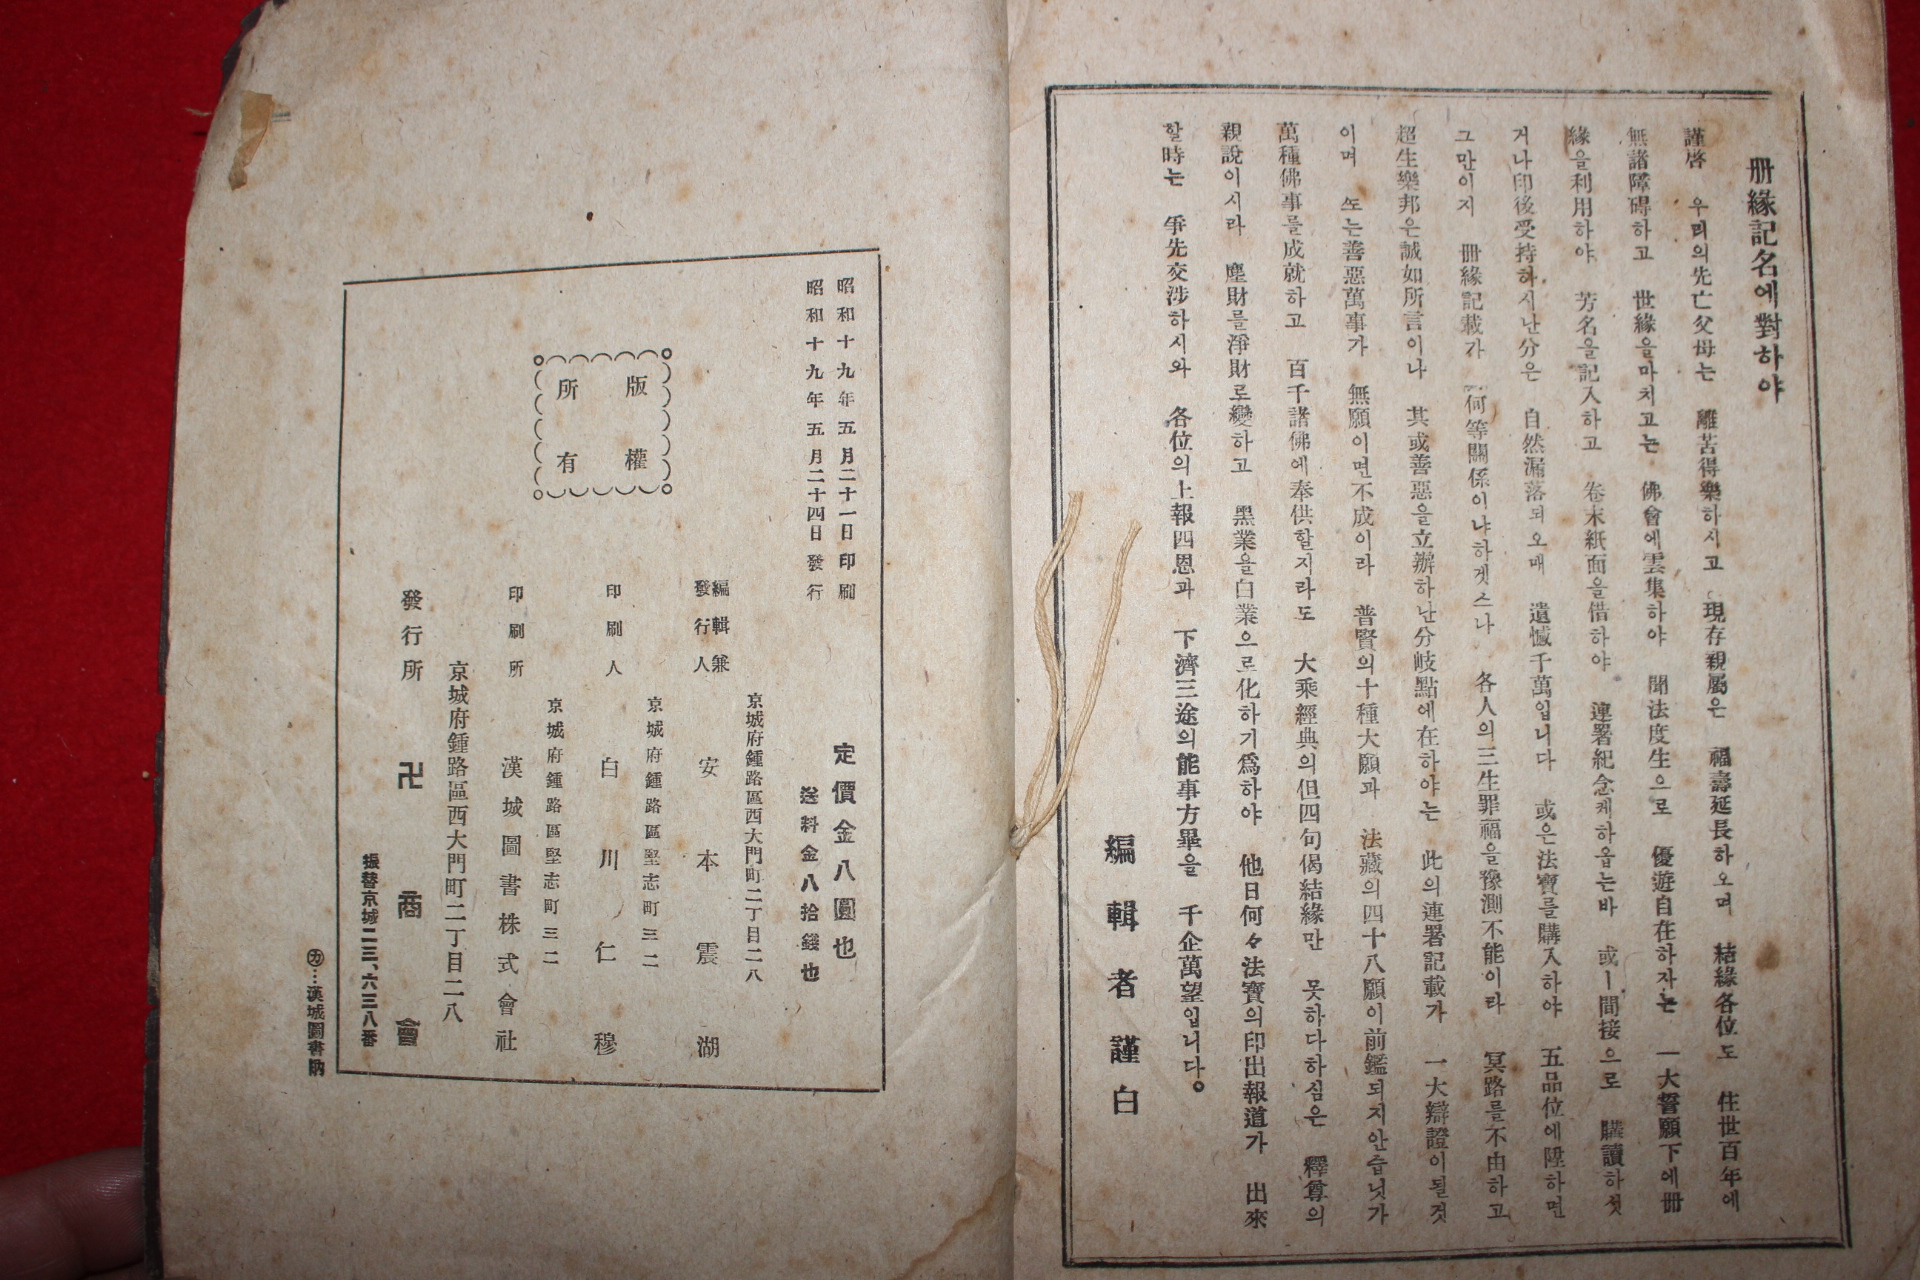 册緣記名에對하야
謹啓 우리의先亡父母는 離苦得樂하시고 現存親屬은 福壽延長하오며 結緣各位도 住世百年에
無諸障碍하고 世緣을마치고는 佛會에雲集하야 聞法度生으로 優遊自在하자는 一大誓願下에册
緣을利用하야 芳名을記入하고 卷末紙面을借하야 連署紀念케하옵는바 或ㅣ間接으로 購讀하섯
거나印後受持하시난分은 自然漏落되오매 遺憾千萬입니다 或은法寶를購入하야 五品位에陞하면
그만이지 册緣記載가 何等關係이냐하겟스나 各人의三生罪福을豫測不能이라 冥路를不由하고
超生樂邦은誠如所言이나 其或善惡을立辦하난分岐點에在하야는 此의連署記載가 一大辯證이될것
이며 ᄯᅩ는善惡萬事가 無願이면不成이라 普賢의十種大願과 法藏의四十八願이前鑑되지안슴닛가
萬種佛事를成就하고 百千諸佛에奉供할지라도 大乘經典의但四句偈結緣만 못하다하심은 釋尊의
親說이시라 塵財를淨財로變하고 黑業을白業으로化하기爲하야 他日何々法寶의印出報道가 出來
할時는 爭先交涉하시와 各位의上報四恩과 下濟三途의能事方畢을 千企萬望입니다。
編輯者謹白
昭和十九年五月二十一日印刷
昭和十九年五月二十四日發行
定價金八圓也
送料金八拾錢也
版權
所有
京城府鍾路區西大門町二丁目二八
編輯兼
發行人
安本震湖
京城府鍾路區堅志町三二
印刷人 白川仁穆
京城府鍾路區堅志町三二
印刷所 漢城圖書株式會社
京城府鍾路區西大門町二丁目二八
發行所 卍商會
振替京城二三、六三八番
㋕…漢城圖書納